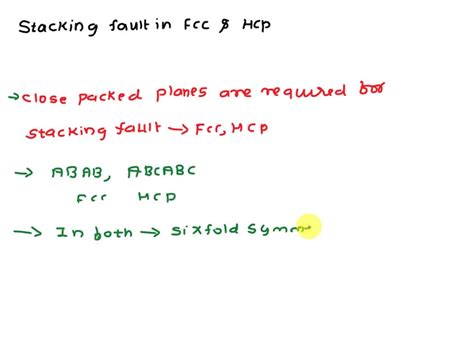 Stacking fault in Fcc & Hcp
→ close packed planes are required for
stacking fault → Fcc, Hcp
→ ABAB, ABCABC
Fcc Hcp
→ In both → Sixfold Symm